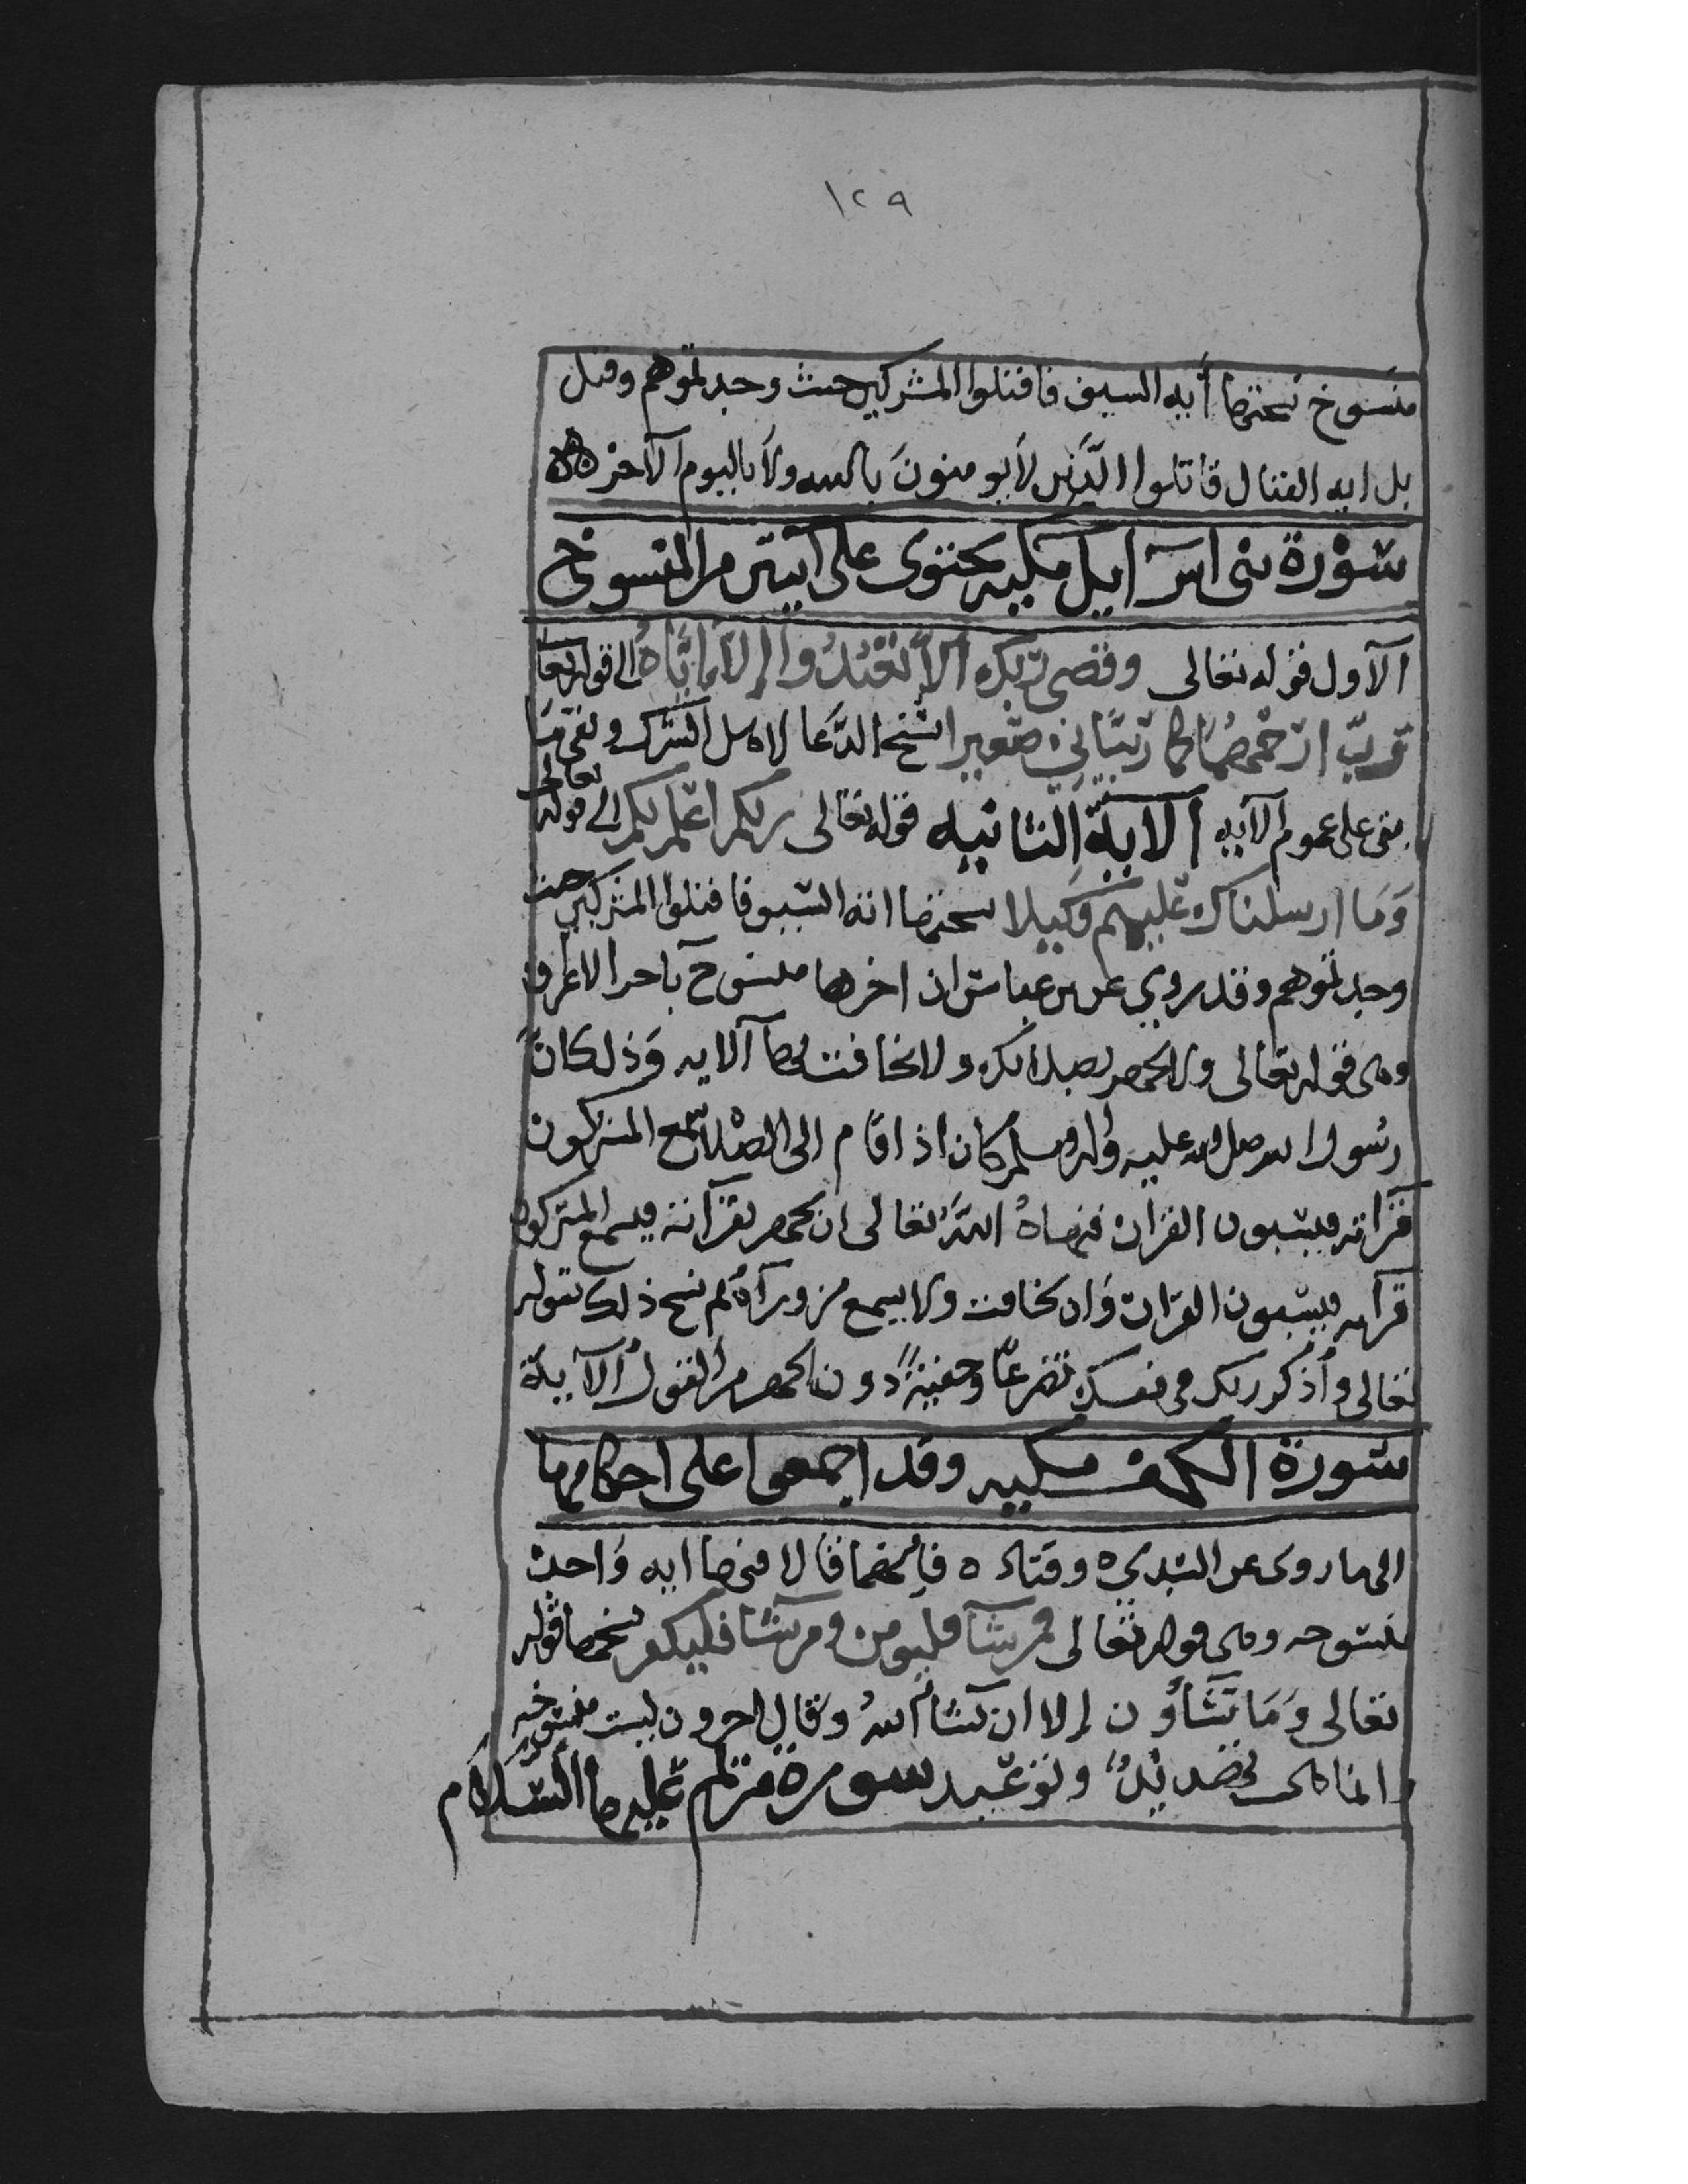 ١٢٩
منسوخ نسختها أيه السيف فاقتلوا المشركين حيث وجدتموهم وقيل
بل ايه القتال قاتلوا الذين لا يومنون بالله ولا باليوم الآخر
سورة بنى اسرايل مكيه يحتوى على آيتين من المنسوخ
الآول قوله تعالى وقضى ربك ألا تعبدوا إلا اياه الى قوله تعا
رب ارحمهما كما ربياني صغيرا نسخ الدعا لاهل الشرك وبقى ما
بقى على عموم الآيه الآية الثانيه قوله تعالى ربكم اعلم بكم الى قوله تعالى
وما ارسلناك عليهم وكيلا نسختها ايه السيف فاقتلوا المشركين حيث
وجدتموهم وقد روي عن بن عباس ان اخرها منسوخ باخر الاعراف
وهى قوله تعالى ولا تجهر بصلاتك ولا تخافت بها الايه وذلك ان
رسول الله صلى الله عليه واله وسلم كان اذ اقام الى الصلاة سمع المشركون
قراته فيسبون القران فنهاه الله تعالى ان يجهر بقرآنه فيسمع المشركون
قرآنه فيسبون القران وان يخافت ولا يسمع من ورآه ثم نسخ ذلك بقوله
تعالى وأذكر ربك في نفسك تضرعا وخفية دون الجهر من القول الآية
سورة الكهف مكيه وقد اجمعوا على احكامها
الى ما روى عن السدي وقتاده فانهما قالا فيها ايه واحدة
منسوخه وهى قوله تعالى فمن شآ فليومن ومن شآ فليكفر نسخها قوله
تعالى وما تشآؤن إلا ان يشآ الله وقال اخرون ليست منسوخه
انما هى تهديد وتوعيد سورة مريم عليها السلام